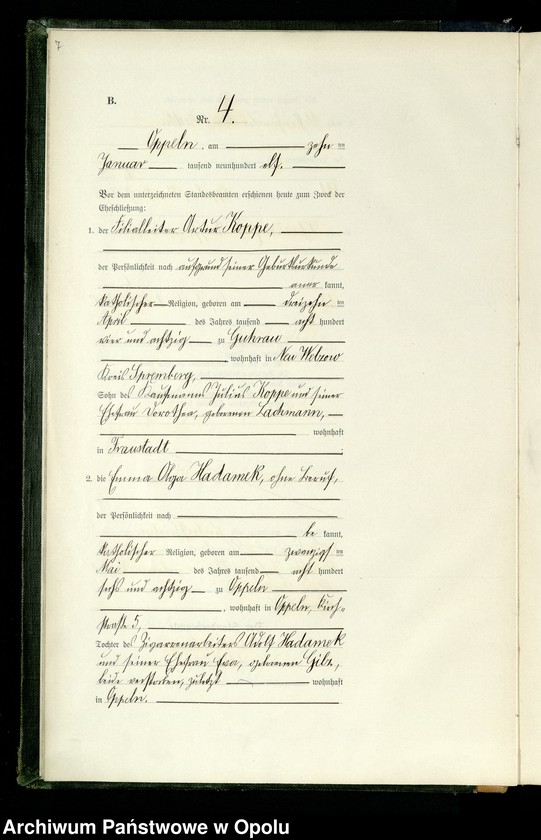 7
B.
Nr. 4.
Oppeln, am zehnten
Januar tausend neunhundert elf.
Vor dem unterzeichneten Standesbeamten erschienen heute zum Zweck der
Eheschließung:
1. der Filialleiter Artur Koppe,
der Persönlichkeit nach aufgrund seiner Geburtsurkunde
anerkannt,
katholischer Religion, geboren am dreizehnten
April des Jahres tausend acht hundert
vier und achtzig zu Guhrau
, wohnhaft in Neu Welzow
Kreis Spremberg,
Sohn des Kaufmanns Julius Koppe und seiner
Ehefrau Dorothea, geborenen Lachmann,
wohnhaft
in Fraustadt
2. die Emma Olga Hadamek, ohne Beruf,
der Persönlichkeit nach
bekannt,
katholischer Religion, geboren am zwanzigsten
Mai des Jahres tausend acht hundert
sechs und achtzig zu Oppeln
, wohnhaft in Oppeln, Kirch-
straße 5,
Tochter des Zigarrenarbeiters Adolf Hadamek
und seiner Ehefrau geborenen
beide verstorben, zuletzt wohnhaft
in Oppeln.
Archiwum Państwowe w Opolu